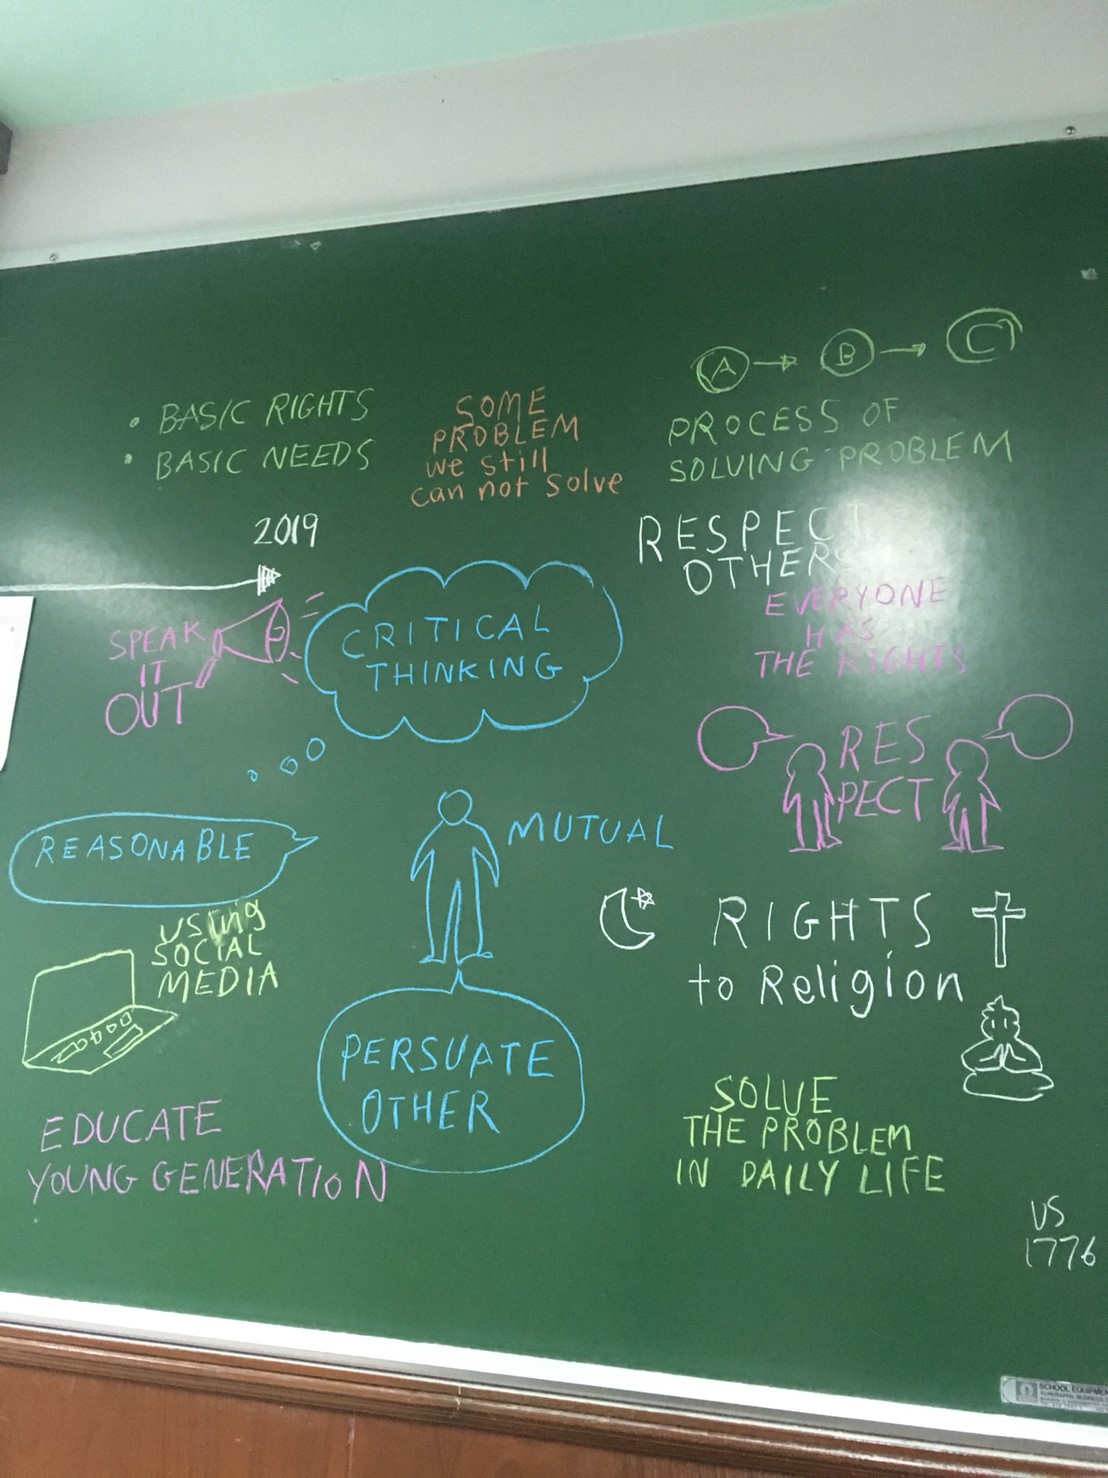 A
B
C
• BASIC RIGHTS
• BASIC NEEDS
SOME
PROBLEM
we still
can not solve
PROCESS OF
SOLVING PROBLEM
2019
RESPECT
OTHERS
EVERYONE
HAS
THE RIGHTS
SPEAK
IT
OUT
CRITICAL
THINKING
RES
PECT
REASONABLE
MUTUAL
USING
SOCIAL
MEDIA
RIGHTS
to Religion
PERSUATE
OTHER
SOLVE
THE PROBLEM
IN DAILY LIFE
EDUCATE
YOUNG GENERATION
US
1776
SCHOOL